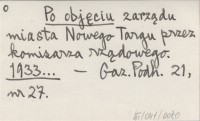 Po objęciu zarządu
miasta Nowego Targu przez
komisarza rządowego.
1933... — Gaz. Podh. 21,
nr 27.